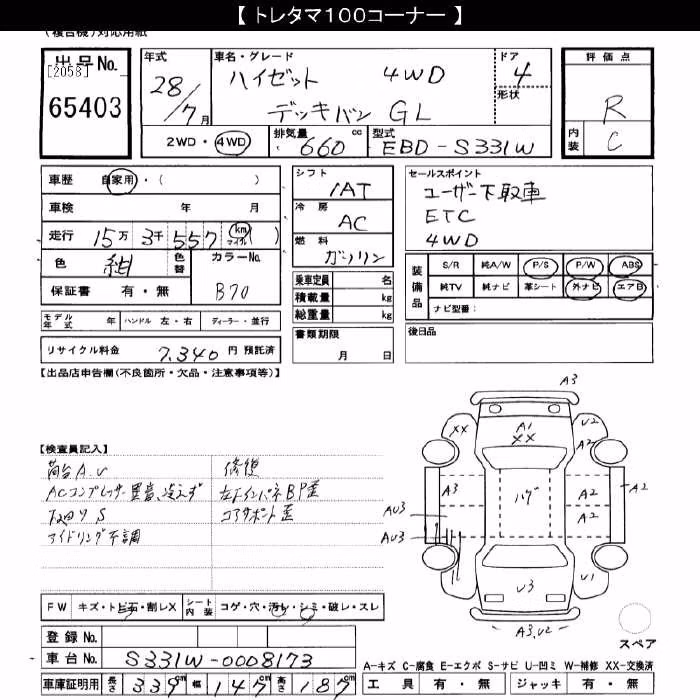 【 トレタマ100コーナー 】
(複合機)対応用紙
出品No.
[2058]
65403
年式
28/7月
車名・グレード
ハイゼット 4WD
デッキバン GL
ドア
4
形状
評価点
R
内装 C
2WD・4WD
排気量
660 cc
型式
EBD-S331W
車歴 自家用・( )
車検 年 月
走行 15万 3千 557 km マイル ( )
色 紺 色替
カラーNo.
B70
保証書 有・無
シフト
IAT
冷房
AC
燃料
ガソリン
乗車定員 名
積載量 kg
総重量 kg
書類期限
月 日
セールスポイント
ユーザー下取車
ETC
4WD
装備品
S/R 純A/W P/S P/W ABS
純TV 純ナビ 革シート 外ナビ エアB
ナビ型番:
後日品
モデル年式 年 ハンドル 左・右 ディーラー・並行
リサイクル料金 7,340 円 預託済
【出品店申告欄(不良箇所・欠品・注意事項等)】
【検査員記入】
荷台A.U
ACコンプレッサー異音、冷えず
下廻りS
アイドリング不調
修復
左Fインパネ BP歪
コアサポート歪
A3
XX
A1
XX
U2
A2
A3
ハゲ
A2
A2
A2
AU3
AU3
U3
U1
A3,U2
スペア
FW キズ・トビ石・割レX
シート内装 コゲ・穴・汚レ・シミ・破レ・スレ
登録 No.
車台 No. S331W-0008173
車庫証明用 長さ 339cm 幅 147cm 高さ 187cm
A-キズ C-腐食 E-エクボ S-サビ U-凹ミ W-補修 XX-交換済
工具 有・無 ジャッキ 有・無